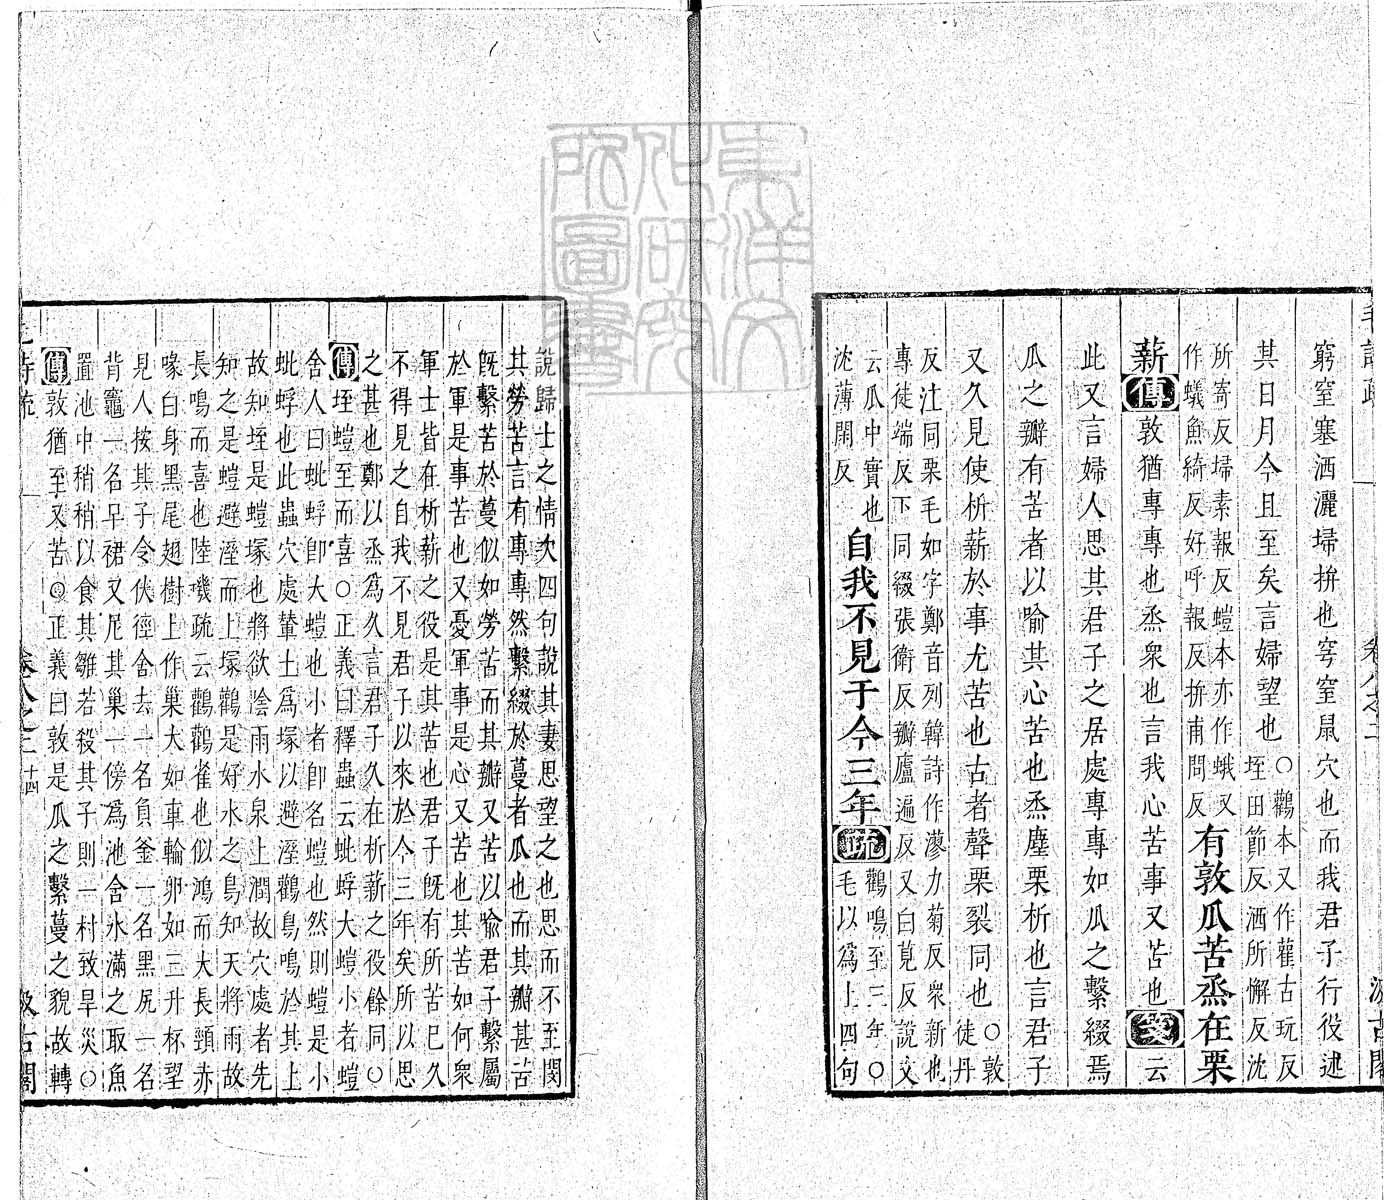 毛詩疏 卷八之二 汲古閣
窮窒塞洒灑埽拚也穹窒鼠穴也而我君子行役述
其日月今且至矣言婦望也
○鸛本又作雚古玩反
垤田節反洒所懈反沈
所寄反埽素報反螘本亦作蛾又
作蟻魚綺反好呼報反拚甫問反
有敦瓜苦烝在栗
薪傳敦猶專專也烝衆也言我心苦事又苦也箋云
此又言婦人思其君子之居處專專如瓜之繫綴焉
瓜之瓣有苦者以喻其心苦也烝塵栗析也言君子
又久見使析薪於事尤苦也古者聲栗裂同也
○敦
徒丹
反注同栗毛如字鄭音列韓詩作蓼力菊反衆新也
專徒端反下同綴張衛反瓣廬遍反又白莧反說文
云瓜中實也
沈薄閑反
自我不見于今三年疏
鸛鳴至三年○
毛以爲上四句
說歸士之情次四句說其妻思望之也思而不至閔
其勞苦言有專專然繫綴於蔓者瓜也而其瓣甚苦
旣繫苦於蔓似如勞苦而其瓣又苦以喻君子繫屬
於軍是事苦也又憂軍事是心又苦也其苦如何衆
軍士皆在析薪之役是其苦也君子旣有所苦已久
不得見之自我不見君子以來於今三年矣所以思
之甚也鄭以烝爲久言君子久在析薪之役餘同○
傳垤螘至而喜○正義曰釋蟲云蚍蜉大螘小者螘
舍人曰蚍蜉卽大螘也小者卽名螘也然則螘是小
蚍蜉也此蟲穴處輦土爲塚以避溼鸛鳥鳴於其上
故知垤是螘塚也將欲陰雨水泉上潤故穴處者先
知之是螘避溼而上塚鸛是好水之鳥知天將雨故
長鳴而喜也陸機疏云鸛鸛雀也似鴻而大長頸赤
喙白身黑尾翅樹上作巢大如車輪卵如三升杯望
見人按其子令伏徑舍去一名負釜一名黑尻一名
背竈一名早裙又尼其巢一傍爲池含水滿之取魚
置池中稍稍以食其雛若殺其子則一村致旱災○
傳敦猶至又苦○正義曰敦是瓜之繫蔓之貌故轉
毛詩疏 卷八之二 十四 汲古閣
東洋文化研究所圖書